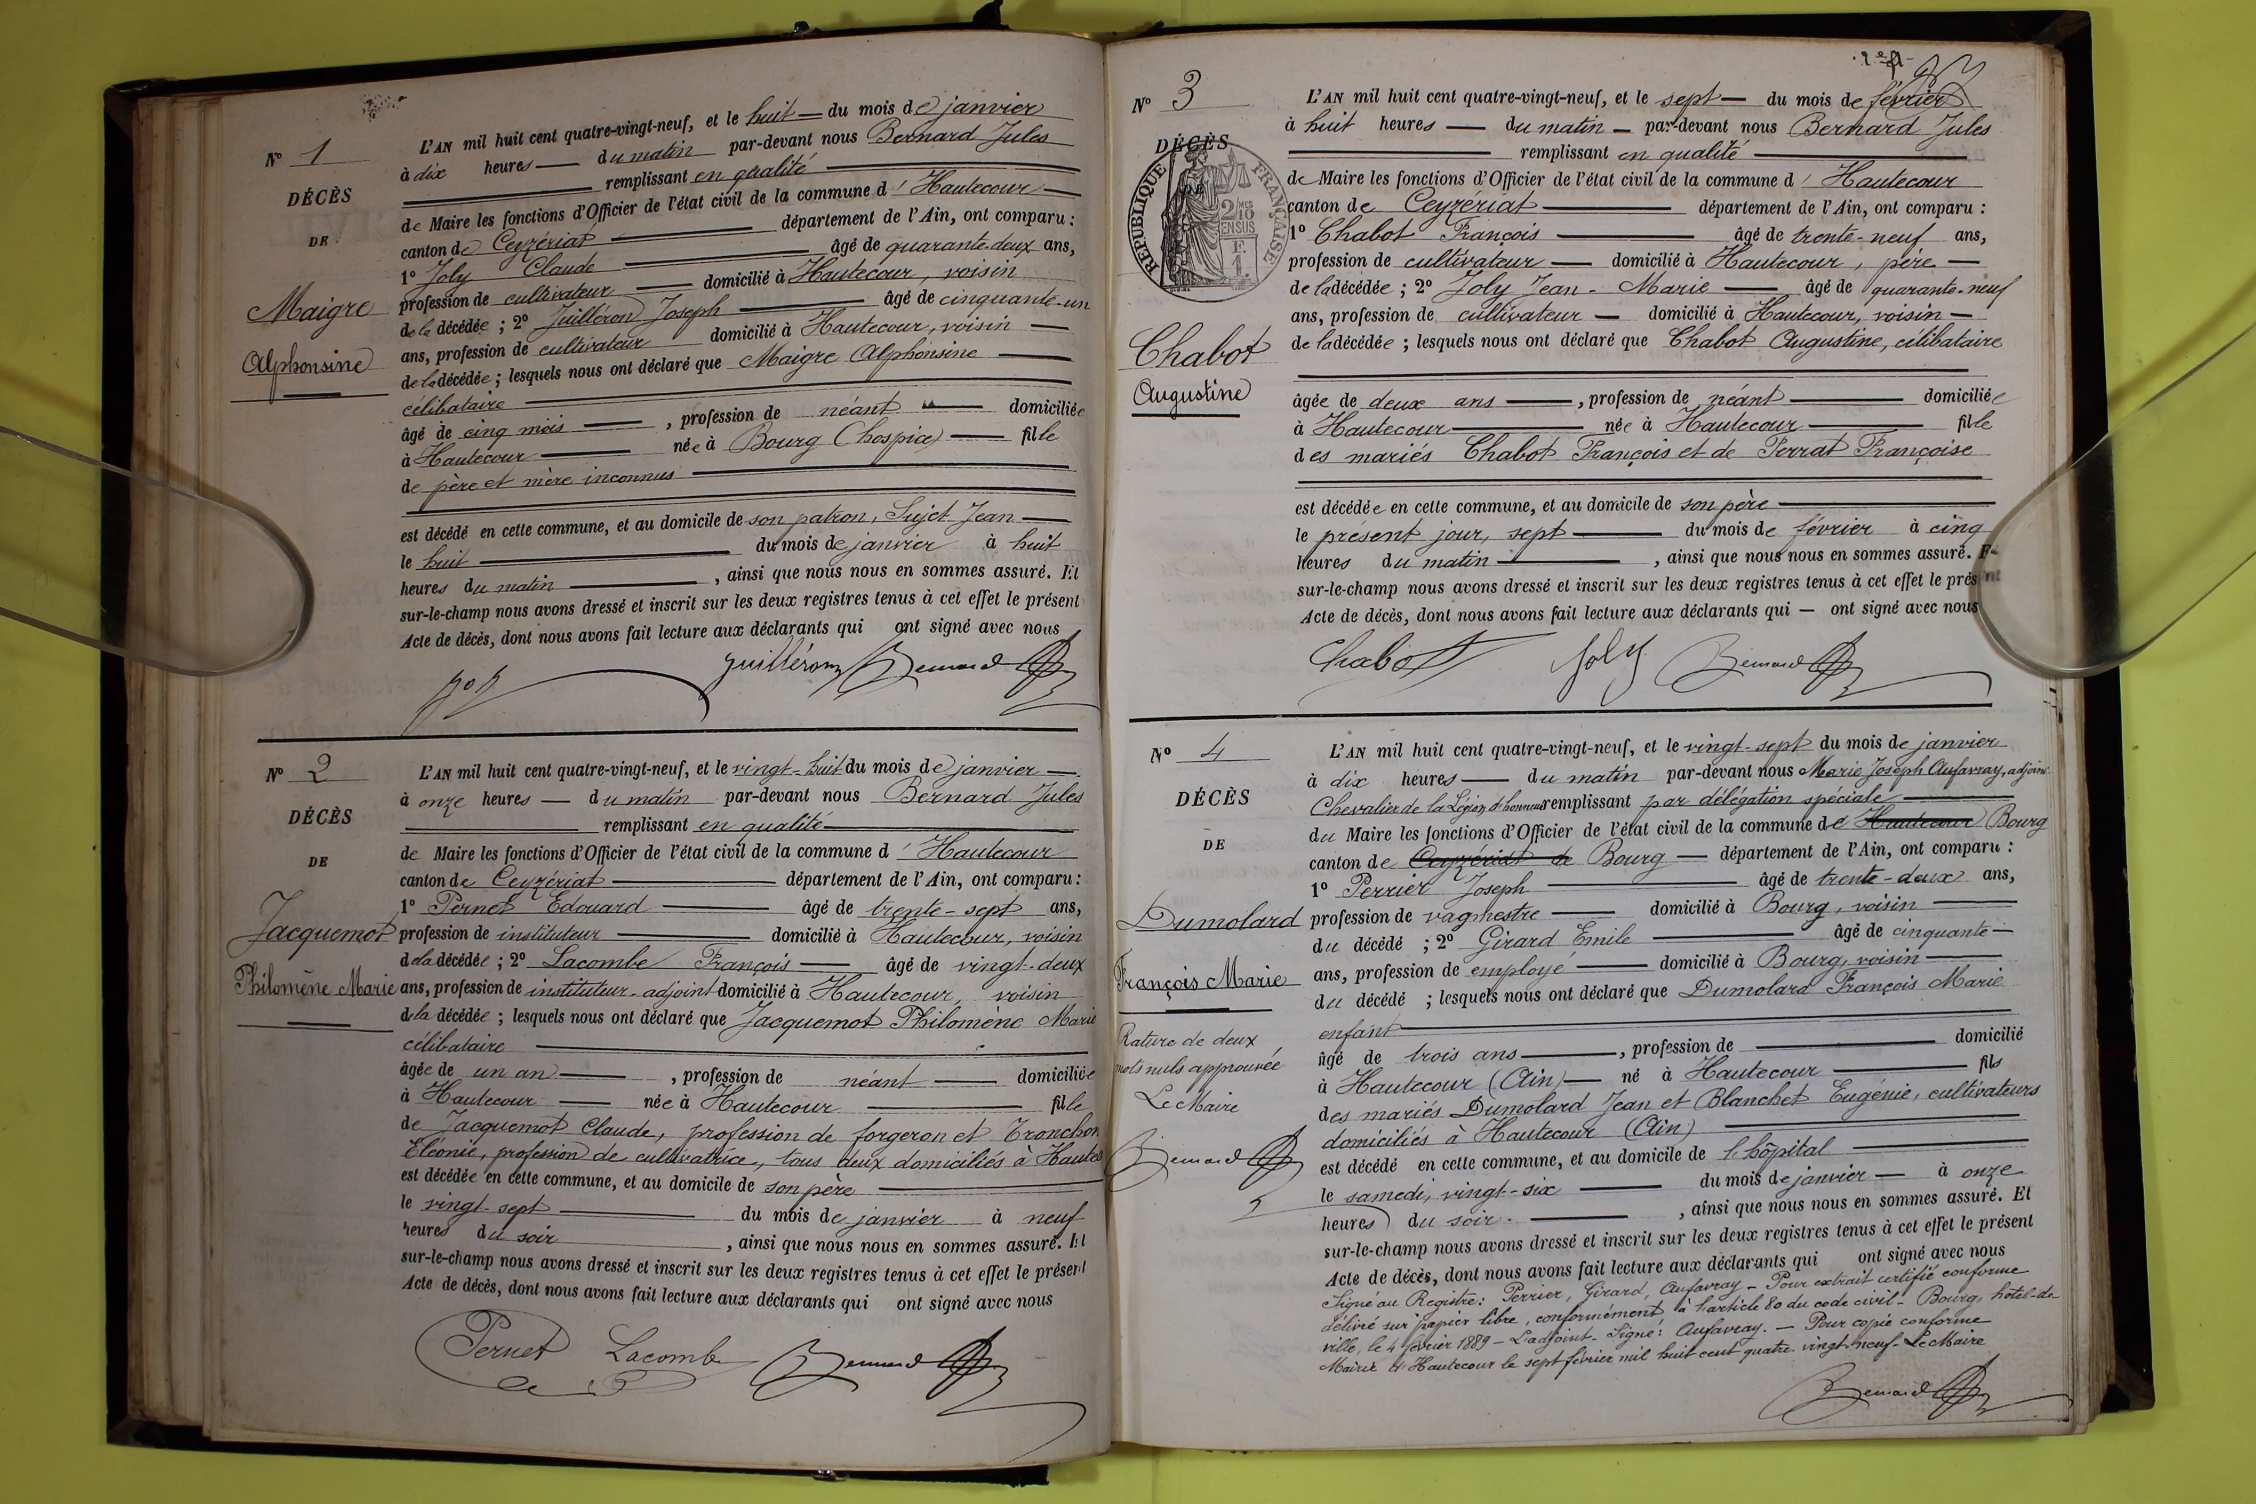 N° 1
DÉCÈS
DE
Maigre
Alphonsine
L'AN mil huit cent quatre-vingt-neuf, et le huit du mois de janvier
à dix heures du matin par-devant nous Bernard Jules
remplissant en qualité
de Maire les fonctions d'Officier de l'état civil de la commune d'Hautecour
canton de Ceyzériat département de l'Ain, ont comparu :
1° Joly Claude âgé de quarante-deux ans,
profession de cultivateur domicilié à Hautecour, voisin
de la décédée ; 2° Juilléron Joseph âgé de cinquante-un
ans, profession de cultivateur domicilié à Hautecour, voisin
de la décédée ; lesquels nous ont déclaré que Maigre Alphonsine
célibataire
âgé de cinq mois , profession de néant domiciliée
à Hautecour née à Bourg (hospice) fille
de père et mère inconnus
est décédé en cette commune, et au domicile de son patron, Sujet Jean
le huit du mois de janvier à huit
heures du matin , ainsi que nous nous en sommes assuré. Et
sur-le-champ nous avons dressé et inscrit sur les deux registres tenus à cet effet le présent
Acte de décès, dont nous avons fait lecture aux déclarants qui ont signé avec nous
Joly Juilléron Bernard
N° 2
DÉCÈS
DE
Jacquemot
Philomène Marie
L'AN mil huit cent quatre-vingt-neuf, et le vingt-huit du mois de janvier
à onze heures du matin par-devant nous Bernard Jules
remplissant en qualité
de Maire les fonctions d'Officier de l'état civil de la commune d'Hautecour
canton de Ceyzériat département de l'Ain, ont comparu :
1° Pernet Edouard âgé de trente-sept ans,
profession de instituteur domicilié à Hautecour, voisin
de la décédée ; 2° Lacombe François âgé de vingt-deux
ans, profession de instituteur-adjoint domicilié à Hautecour, voisin
de la décédée ; lesquels nous ont déclaré que Jacquemot Philomène Marie
célibataire
âgée de un an , profession de néant domiciliée
à Hautecour née à Hautecour fille
de Jacquemot Claude, profession de forgeron et Tronchon
Eléonie, profession de cultivatrice, tous deux domiciliés à Hautec
est décédée en cette commune, et au domicile de son père
le vingt-sept du mois de janvier à neuf
heures du soir , ainsi que nous nous en sommes assuré. Et
sur-le-champ nous avons dressé et inscrit sur les deux registres tenus à cet effet le présent
Acte de décès, dont nous avons fait lecture aux déclarants qui ont signé avec nous
Pernet Lacombe Bernard
N° 3
DÉCÈS
DE
RÉPUBLIQUE FRANÇAISE
2/10 EN SUS
Chabot
Augustine
L'AN mil huit cent quatre-vingt-neuf, et le sept du mois de février
à huit heures du matin par-devant nous Bernard Jules
remplissant en qualité
de Maire les fonctions d'Officier de l'état civil de la commune d'Hautecour
canton de Ceyzériat département de l'Ain, ont comparu :
1° Chabot François âgé de trente-neuf ans,
profession de cultivateur domicilié à Hautecour, père
de la décédée ; 2° Joly Jean-Marie âgé de quarante-neuf
ans, profession de cultivateur domicilié à Hautecour, voisin
de la décédée ; lesquels nous ont déclaré que Chabot Augustine, célibataire
âgée de deux ans , profession de néant domiciliée
à Hautecour née à Hautecour fille
des mariés Chabot François et de Perrat Françoise
est décédée en cette commune, et au domicile de son père
le présent jour, sept du mois de février à cinq
heures du matin , ainsi que nous nous en sommes assuré. Et
sur-le-champ nous avons dressé et inscrit sur les deux registres tenus à cet effet le présent
Acte de décès, dont nous avons fait lecture aux déclarants qui ont signé avec nous
Chabot Joly Bernard
N° 4
DÉCÈS
DE
Dumolard
François Marie
Rature de deux
mots nuls approuvée
Le Maire
Bernard
L'AN mil huit cent quatre-vingt-neuf, et le vingt-sept du mois de janvier
à dix heures du matin par-devant nous Marie Joseph Aufavray, adjoint
Chevalier de la Légion d'honneur remplissant par délégation spéciale
du Maire les fonctions d'Officier de l'état civil de la commune de Hautecour Bourg
canton de Ceyzériat de Bourg département de l'Ain, ont comparu :
1° Perrier Joseph âgé de trente-deux ans,
profession de vagmestre domicilié à Bourg, voisin
du décédé ; 2° Girard Emile âgé de cinquante
ans, profession de employé domicilié à Bourg, voisin
du décédé ; lesquels nous ont déclaré que Dumolard François Marie
enfant
âgé de trois ans , profession de domicilié
à Hautecour (Ain) né à Hautecour fils
des mariés Dumolard Jean et Blanchet Eugénie, cultivateurs
domiciliés à Hautecour (Ain)
est décédé en cette commune, et au domicile de l'hôpital
le samedi, vingt-six du mois de janvier à onze
heures du soir , ainsi que nous nous en sommes assuré. Et
sur-le-champ nous avons dressé et inscrit sur les deux registres tenus à cet effet le présent
Acte de décès, dont nous avons fait lecture aux déclarants qui ont signé avec nous
Signé au Registre : Perrier, Girard, Aufavray - Pour extrait certifié conforme
délivré sur papier libre, conformément à l'article 80 du code civil - Bourg, hôtel-de-
ville, le 4 février 1889 - L'adjoint - Signé : Aufavray. - Pour copie conforme
Mairie d'Hautecour le sept février mil huit cent quatre-vingt-neuf - Le Maire
Bernard